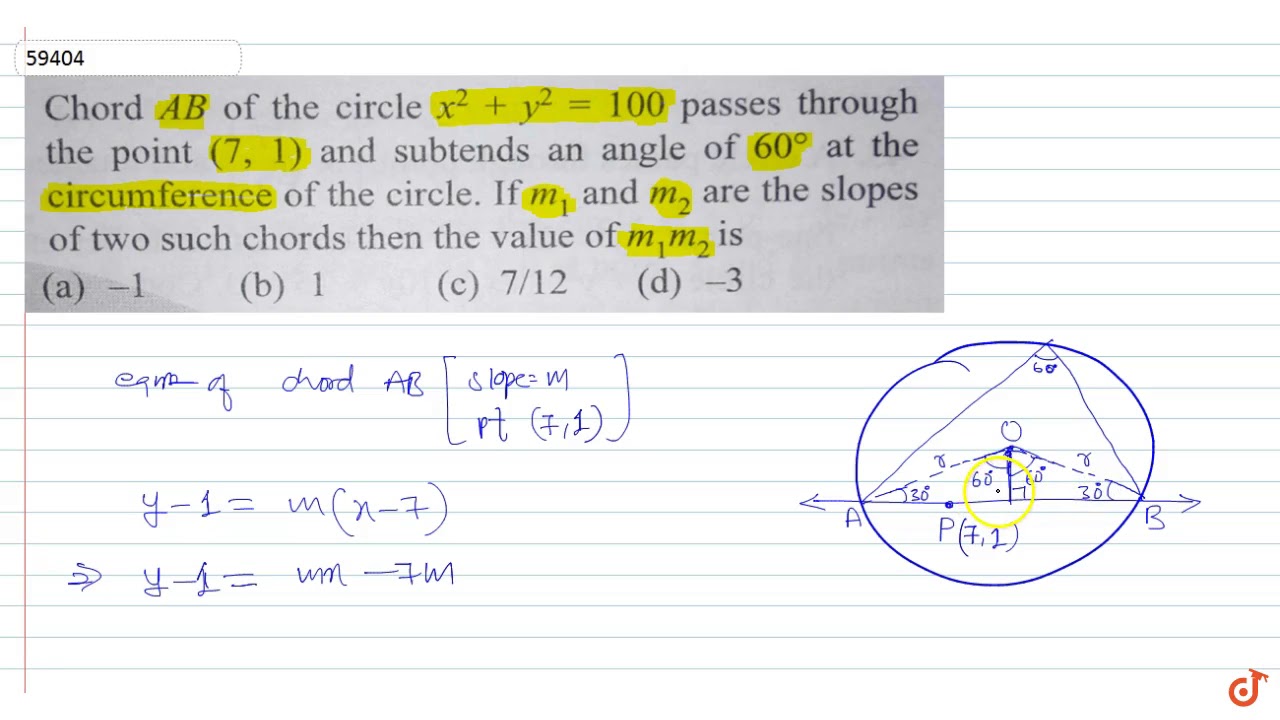 59404
Chord AB of the circle x² + y² = 100 passes through
the point (7, 1) and subtends an angle of 60° at the
circumference of the circle. If m₁ and m₂ are the slopes
of two such chords then the value of m₁m₂ is
(a) –1 (b) 1 (c) 7/12 (d) –3
eqn of chord AB [slope = m
pt (7,1)]
y-1 = m(x-7)
⇒ y-1 = mx -7m
60°
O
r r
60° 60°
30° 30°
A B
P(7,1)